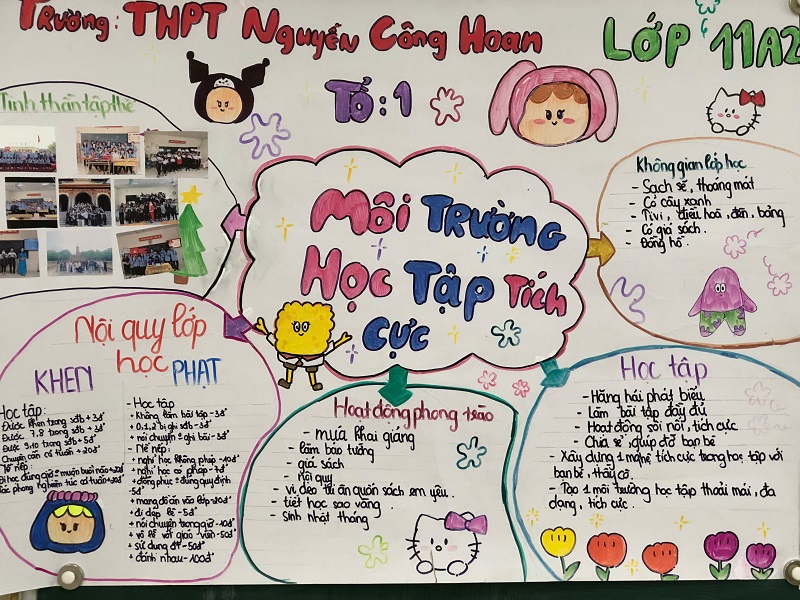 TRƯỜNG: THPT NGUYỄN CÔNG HOAN
LỚP 11A2
TỔ: 1
Tinh thần tập thể
MÔI TRƯỜNG
HỌC TẬP TÍCH
CỰC
Không gian lớp học
- Sạch sẽ, thoáng mát
- Có cây xanh
- Tivi, điều hoà, đèn, bảng
- Có giá sách.
- Đồng hồ.
Nội quy lớp
học
KHEN
Học tập:
Được khen trong sđb + 3đ
Được 7,8 trong sđb + 3đ
Được 9,10 trong sđb + 5đ
Chuyên cần cả tuần + 20đ
Nề nếp:
PHẠT
- Học tập
+ Không làm bài tập - 3đ
+ 0,1,2 bị ghi sđb - 3đ
+ nói chuyện ghi bài - 3đ
- Nề nếp
+ nghỉ học không phép - 10đ
+ nghỉ học có phép - 7đ
+ đồng phục = đúng quy định
- 5đ
+ mang đồ ăn vào lớp - 20đ
+ đi dép lê - 5đ
+ nói chuyện trong giờ - 10đ
+ vô lễ với giáo viên - 50đ
+ sử dụng ĐT - 50đ
+ đánh nhau - 100đ
Hoạt động phong trào
- múa khai giảng
- làm báo tường
- giá sách
- nội quy
- video dự án quốn sách em yêu.
- tiết học sao vàng.
- Sinh nhật tháng
Học tập
- Hăng hái phát biểu
- Làm bài tập đầy đủ
- Hoạt động sôi nổi, tích cực
- Chia sẻ, giúp đỡ bạn bè
- Xây dựng 1 nghề tích cực trong học tập với
bạn bè, thầy cô.
- Tạo 1 môi trường học tập thoải mái, đa
dạng, tích cực.